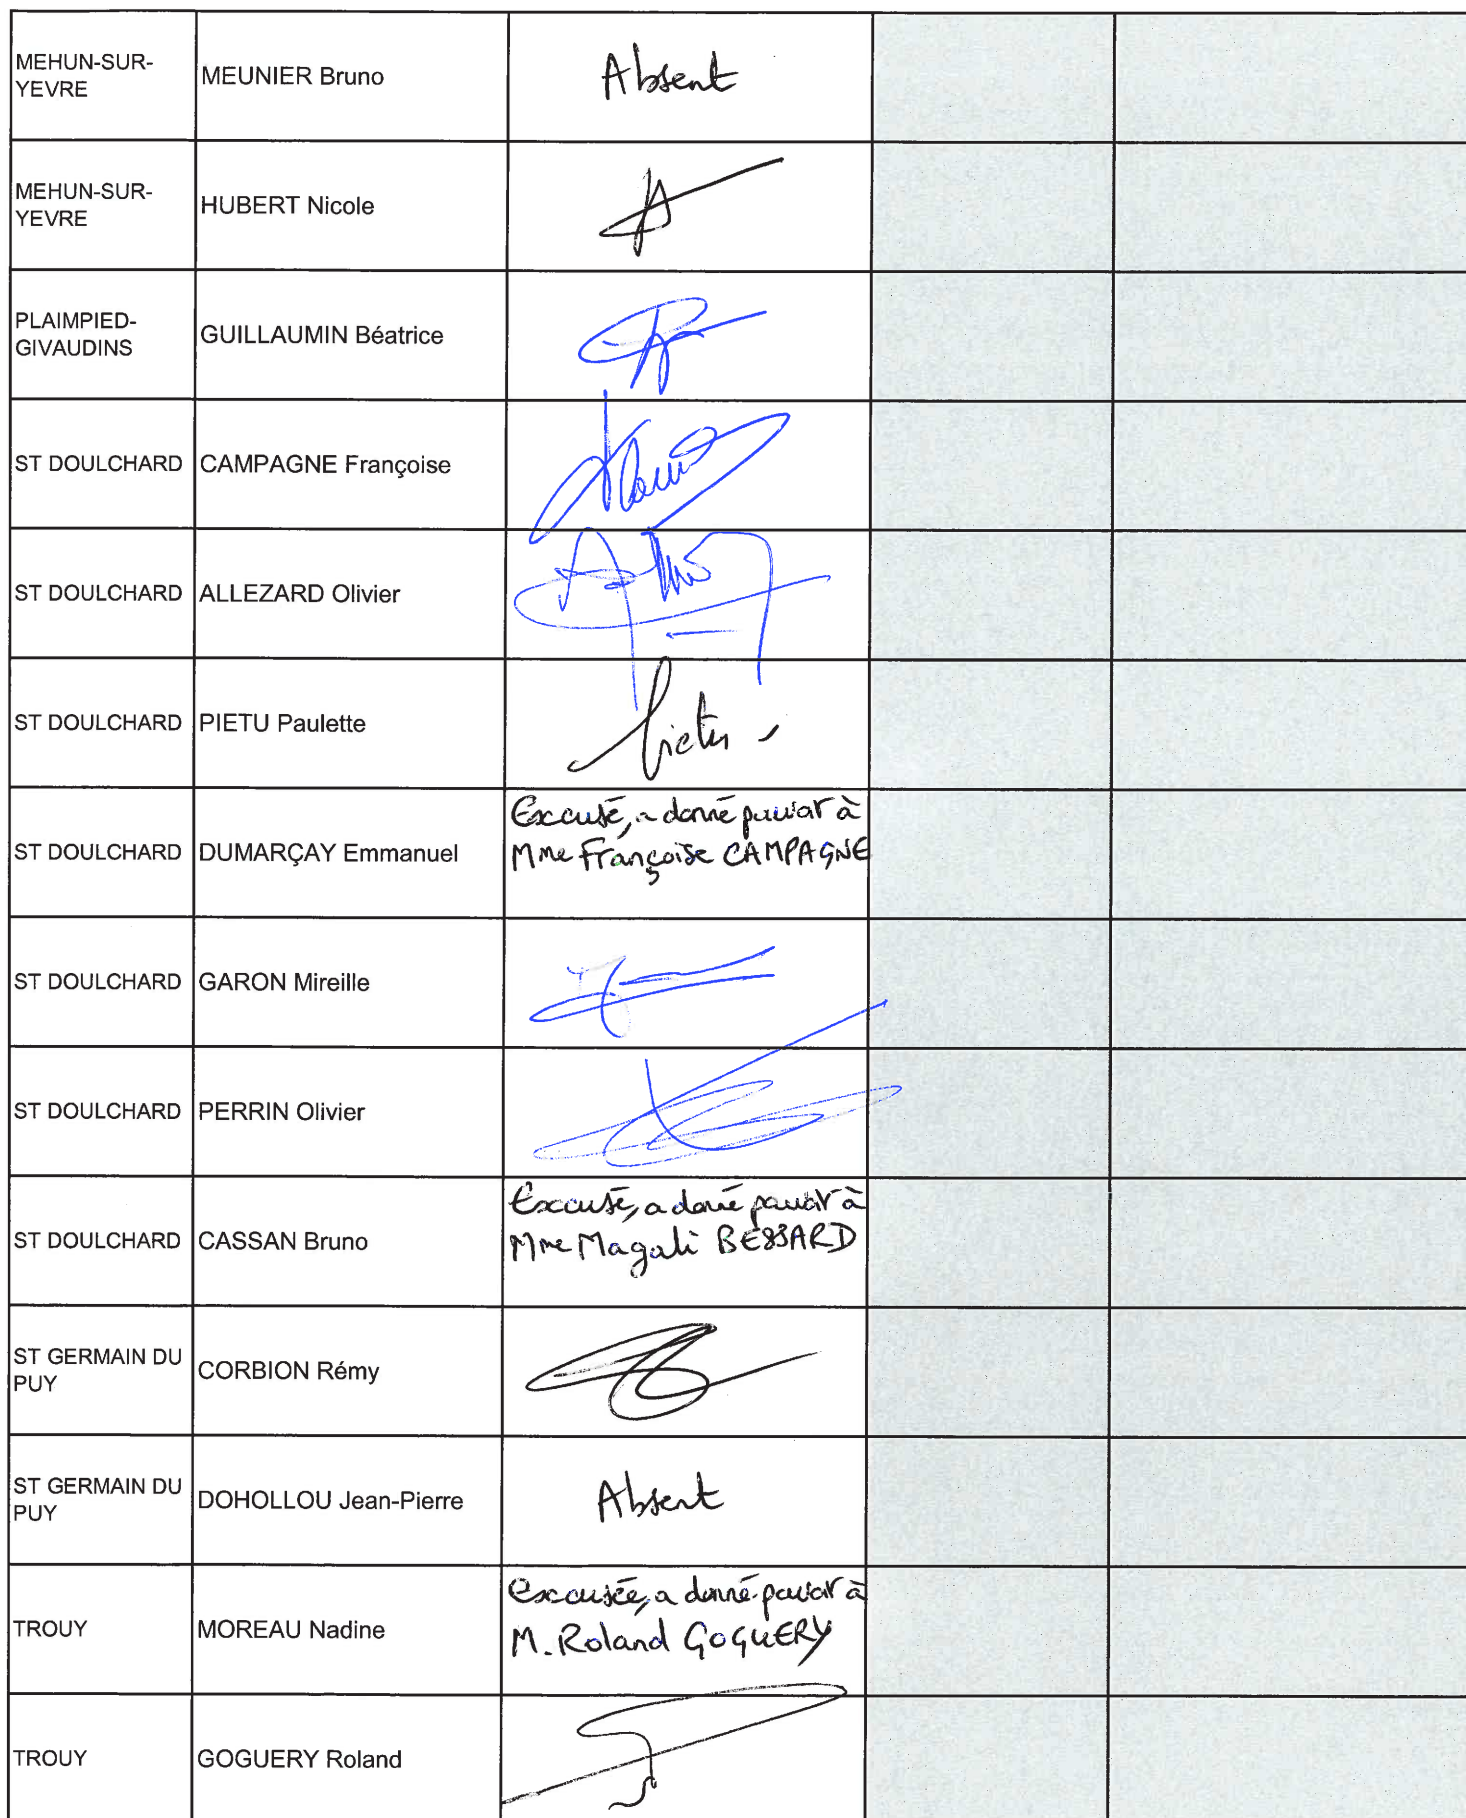 MEHUN-SUR-
YEVRE
MEUNIER Bruno
Absent
MEHUN-SUR-
YEVRE
HUBERT Nicole
PLAIMPIED-
GIVAUDINS
GUILLAUMIN Béatrice
ST DOULCHARD
CAMPAGNE Françoise
ST DOULCHARD
ALLEZARD Olivier
ST DOULCHARD
PIETU Paulette
Pietu
ST DOULCHARD
DUMARÇAY Emmanuel
Excusé, a donné pouvoir à
Mme Françoise CAMPAGNE
ST DOULCHARD
GARON Mireille
ST DOULCHARD
PERRIN Olivier
ST DOULCHARD
CASSAN Bruno
Excusé, a donné pouvoir à
Mme Magali BESSARD
ST GERMAIN DU
PUY
CORBION Rémy
ST GERMAIN DU
PUY
DOHOLLOU Jean-Pierre
Absent
TROUY
MOREAU Nadine
Excusée, a donné pouvoir à
M. Roland GOGUERY
TROUY
GOGUERY Roland